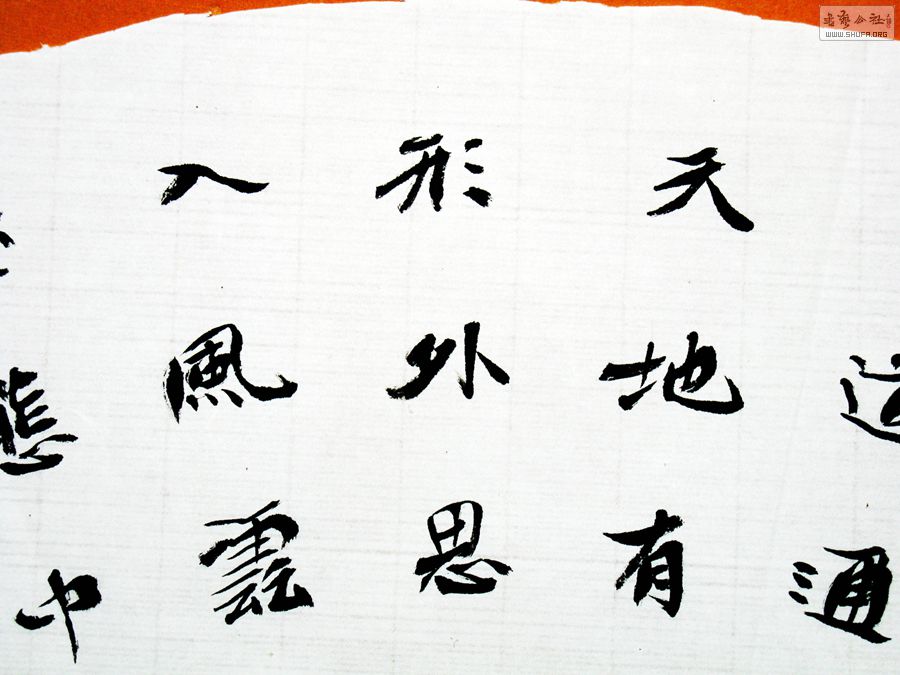 道通
天地有
形外思
入風雲
態中
書藝公社
WWW.SHUFA.ORG